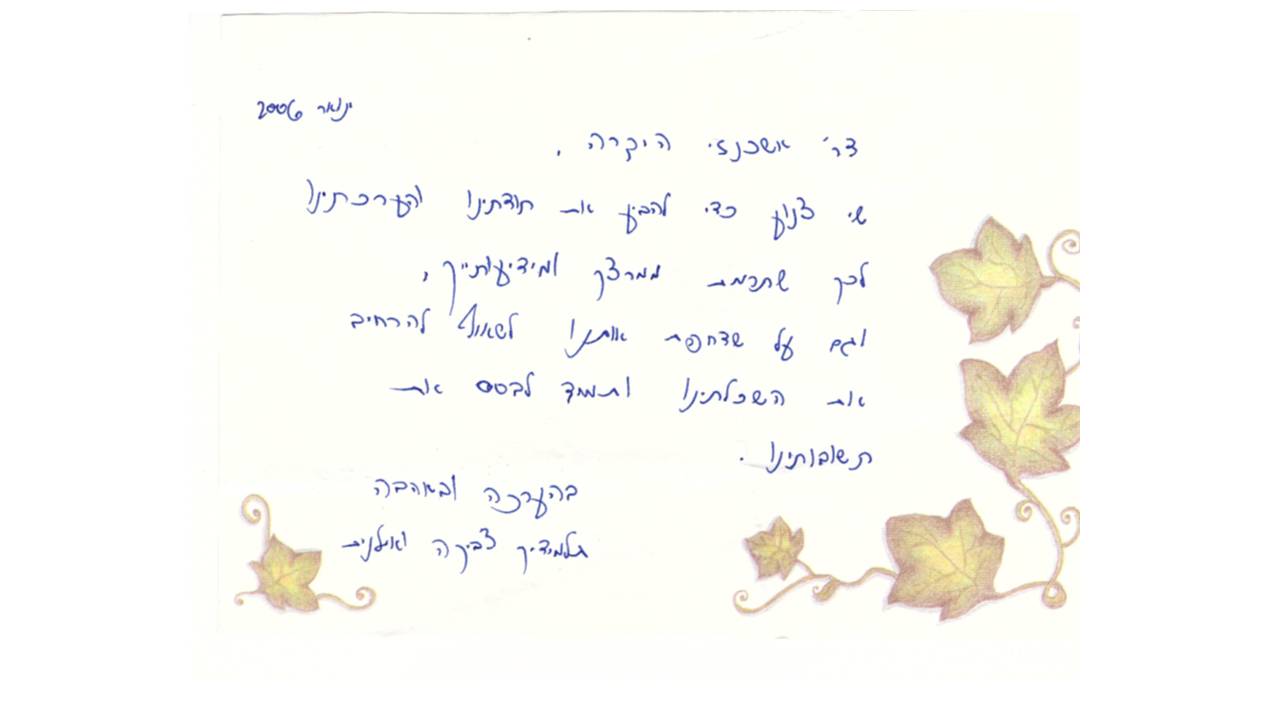 ינואר 2006
דר' אשכנזי היקרה,
שי צנוע כדי להביע את תודתינו והערכתינו
לכך שתרמת ממרצך ומידיעותייך,
וגם על שדחפת אותנו לשאוף להרחיב
את השכלתינו ותמיד לבסס את
תשובותינו.
בהערכה ובאהבה
תלמידיך צביקה ואילנית